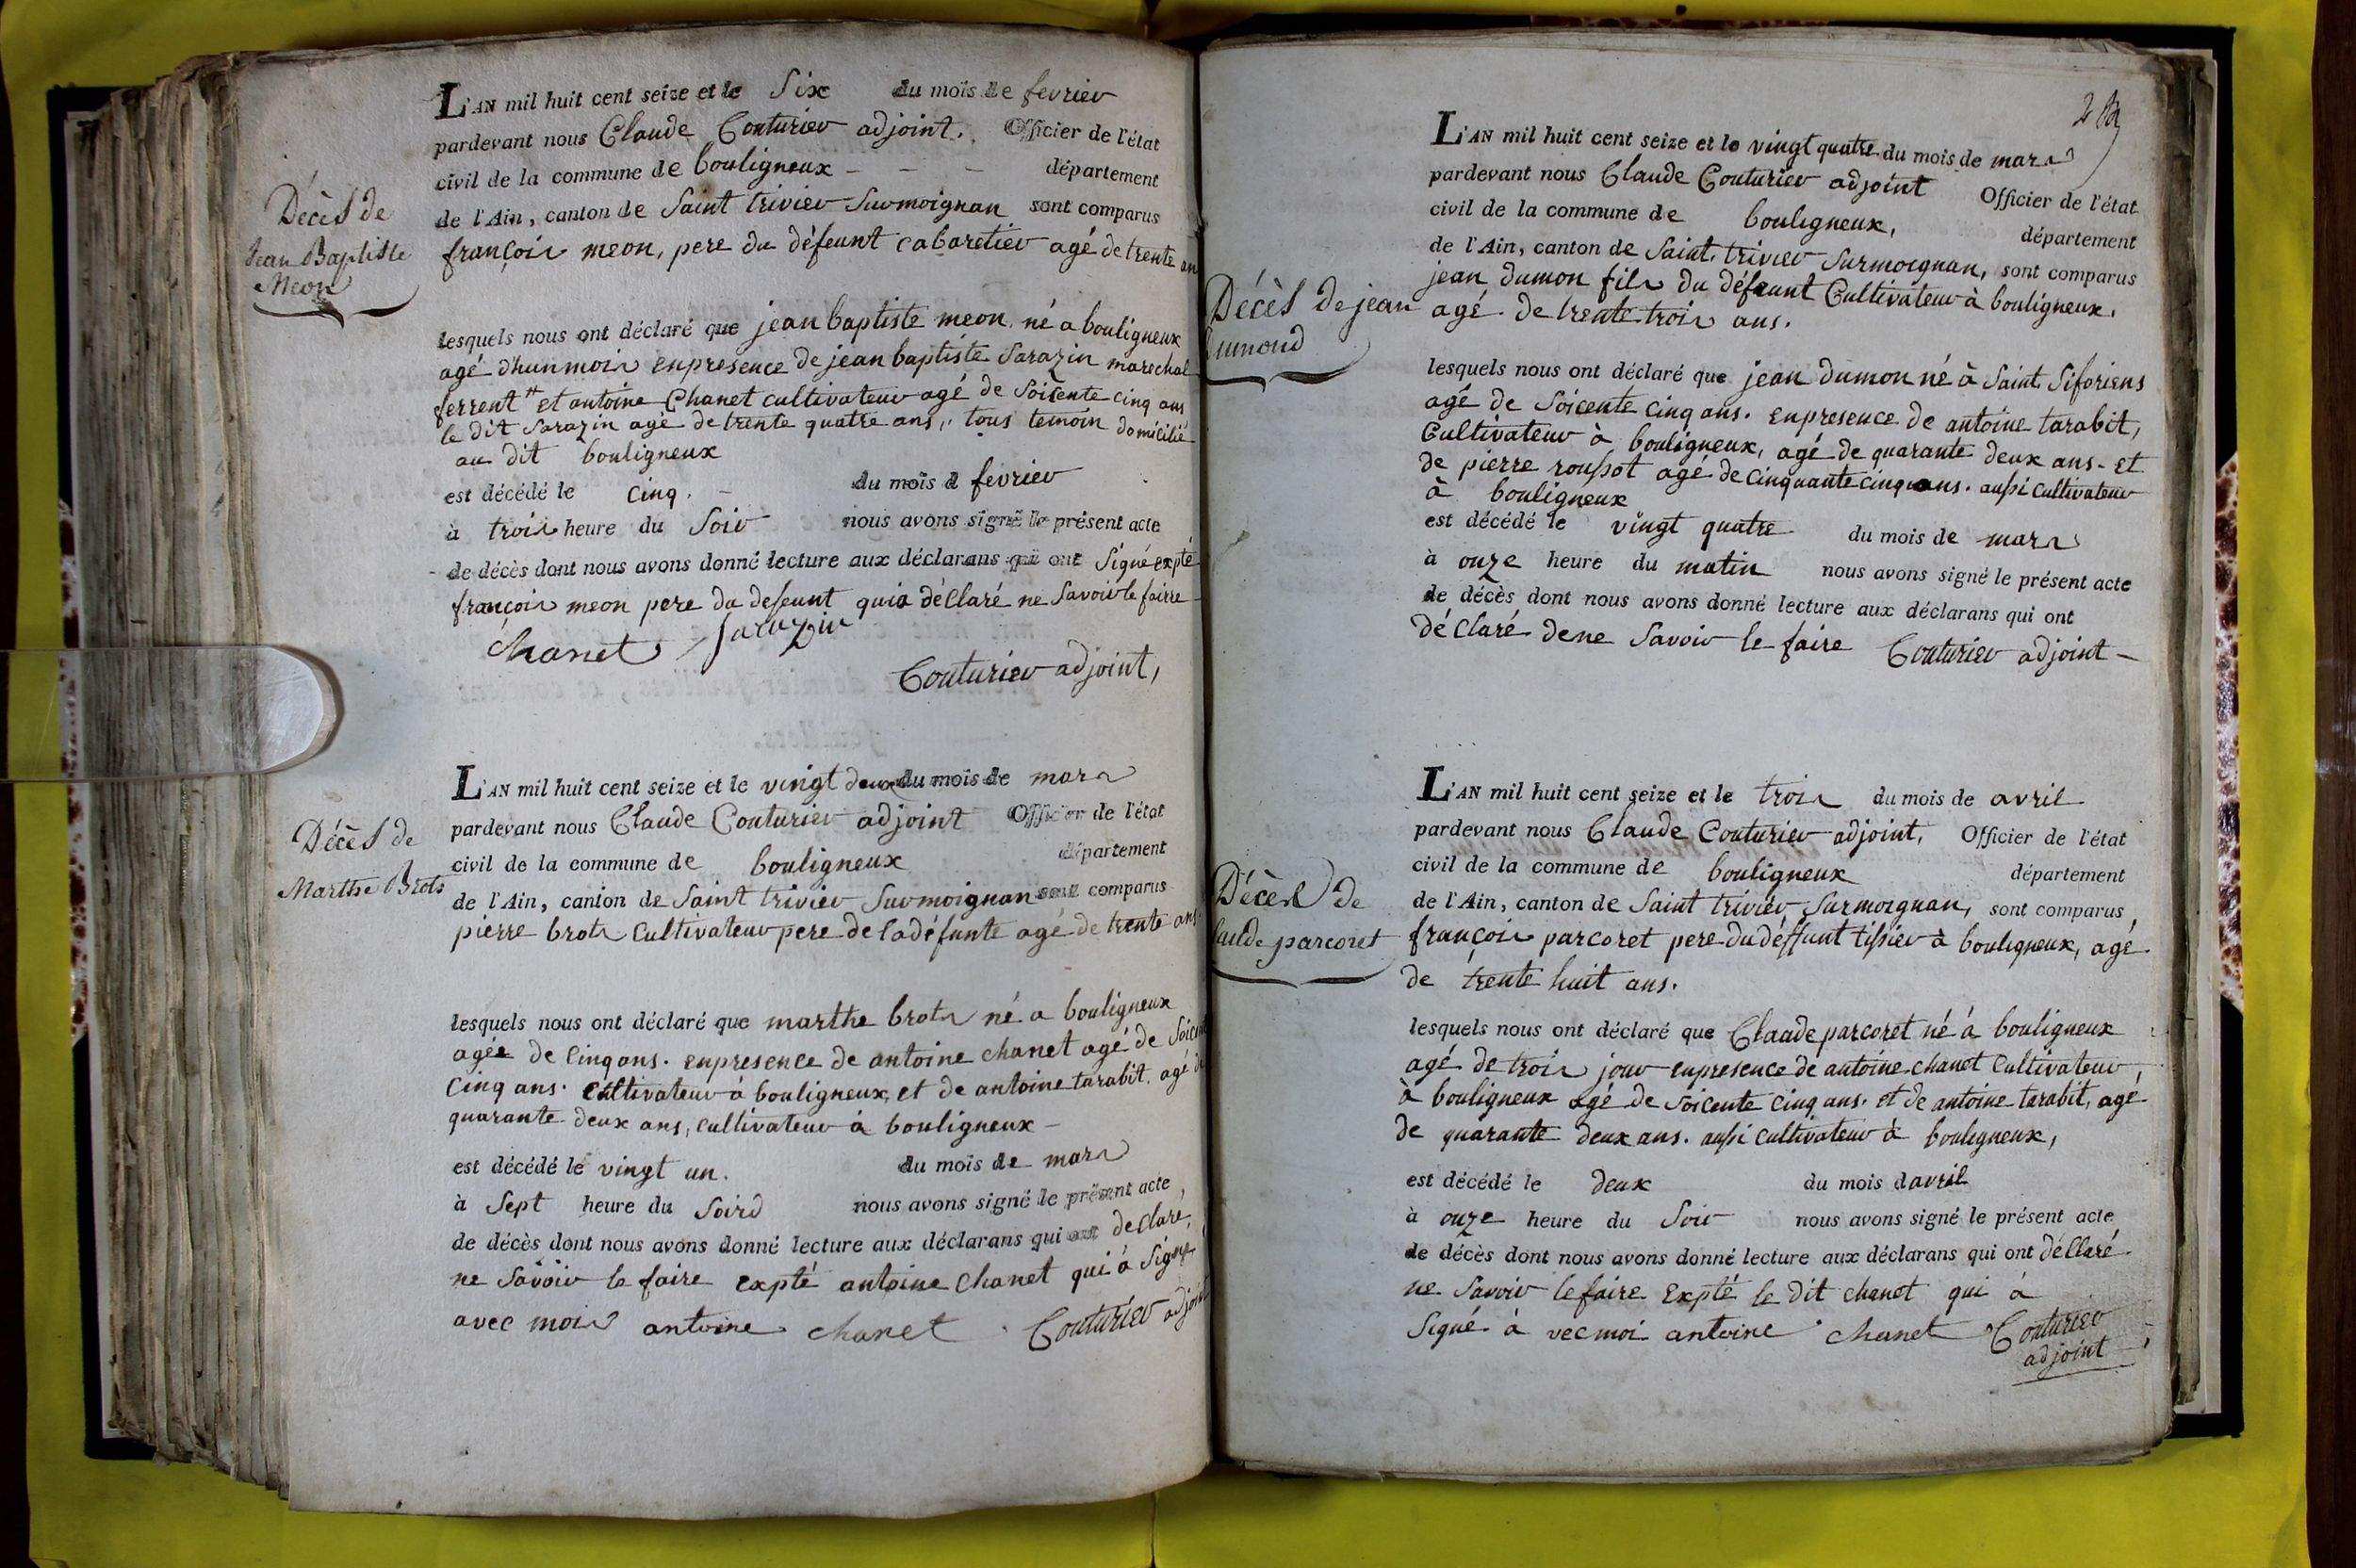 Décès de
Jean Baptiste
Meon
L'AN mil huit cent seize et le Six du mois de fevrier
pardevant nous Claude Couturier adjoint. Officier de l'état
civil de la commune de bouligneux - - - département
de l'Ain, canton de Saint trivier Surmoignan sont comparus
françois meon, pere du défeunt cabaretier agé de trente an
lesquels nous ont déclaré que jean baptiste meon, né a bouligneux
agé d'hun mois enpresence de jean baptiste Sarazin marechal
ferrent # et antoine Chanet cultivateur agé de Soicente cinq ans
le dit Sarazin agé de trente quatre ans, tous temoin domicilié
au dit bouligneux
est décédé le cinq. - du mois d fevrier
à trois heure du Soir nous avons signé le présent acte
de décès dont nous avons donné lecture aux déclarans qui ont Signé expté
françois meon pere du defeunt quia déclaré ne Savoir le fairre
Chanet Sarazin
Couturier adjoint,
Décès de
Marthe Brots
L'AN mil huit cent seize et le vingt deux du mois de mars
pardevant nous Claude Couturier adjoint Officier de l'état
civil de la commune de bouligneux département
de l'Ain, canton de Saint trivier Surmoignan sont comparus
pierre brots Cultivateur pere de la défunte agé de trente ans
lesquels nous ont déclaré que marthe brots né a bouligneux
agée de Cinq ans. enpresence de antoine chanet agé de
Cinq ans. Cultivateur à bouligneux, et de antoine tarabit, agé de
quarante deux ans, cultivateur à bouligneux -
est décédé le vingt un. du mois de mars
à Sept heure du Soird nous avons signé le présent acte
de décès dont nous avons donné lecture aux déclarans qui ont declare,
ne Savoir le faire expté antoine Chanet qui à Signé
avec mois antoine chanet Couturier adjoint
Décès de jean
Dumond
L'AN mil huit cent seize et le vingt quatre du mois de mars
pardevant nous Claude Couturier adjoint Officier de l'état
civil de la commune de bouligneux, département
de l'Ain, canton de Saint trivier Surmoignan, sont comparus
jean dumon fils du défeunt Cultivateur à bouligneux,
agé de trente trois ans.
lesquels nous ont déclaré que jean dumon né à Saint Siforiens
agé de Soicente cinq ans. enpresence de antoine tarabit,
Cultivateur à bouligneux, agé de quarante deux ans. et
de pierre roussot agé de Cinquante cinq ans. aussi Cultivateur
à bouligneux
est décédé le vingt quatre du mois de mars
à onze heure du matin nous avons signé le présent acte
de décès dont nous avons donné lecture aux déclarans qui ont
déclaré dene Savoir le faire Couturier adjoint -
Décès de
Claude parcoret
L'AN mil huit cent seize et le trois du mois de avril
pardevant nous Claude Couturier adjoint, Officier de l'état
civil de la commune de bouligneux département
de l'Ain, canton de Saint trivier Surmoignan, sont comparus
françois parcoret pere du déffunt tissier à bouligneux, agé
de trente huit ans.
lesquels nous ont déclaré que Claude parcoret né à bouligneux
agé de trois jour enpresence de antoine chanet Cultivateur,
à bouligneux agé de Soicente cinq ans. et de antoine tarabit, agé
de quarante deux ans. aussi cultivateur à bouligneux,
est décédé le deux du mois davril
à onze heure du Soir nous avons signé le présent acte
de décès dont nous avons donné lecture aux déclarans qui ont déclaré
ne Savoir le faire Expté le dit chanet qui à
Signé à vecmoi antoine chanet Couturier
adjoint